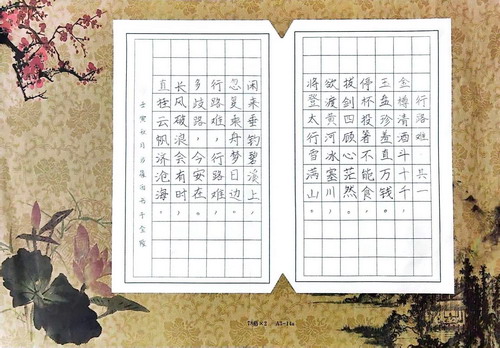 行路难 其一
金樽清酒斗十千，
玉盘珍羞直万钱。
停杯投箸不能食，
拔剑四顾心茫然。
欲渡黄河冰塞川，
将登太行雪满山。
闲来垂钓碧溪上，
忽复乘舟梦日边。
行路难，行路难，
多歧路，今安在。
长风破浪会有时，
直挂云帆济沧海。
壬寅秋月